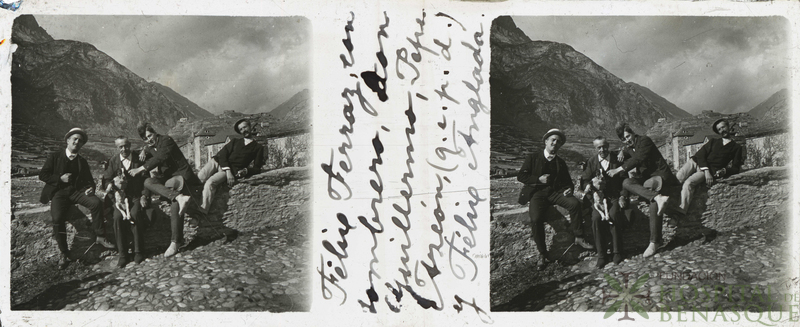 Félix Ferraz, con
sombrero, don
Guillermo, Pepe
Azcón, (q.e.p.d.)
y Félix Anglada.
BENASQUE